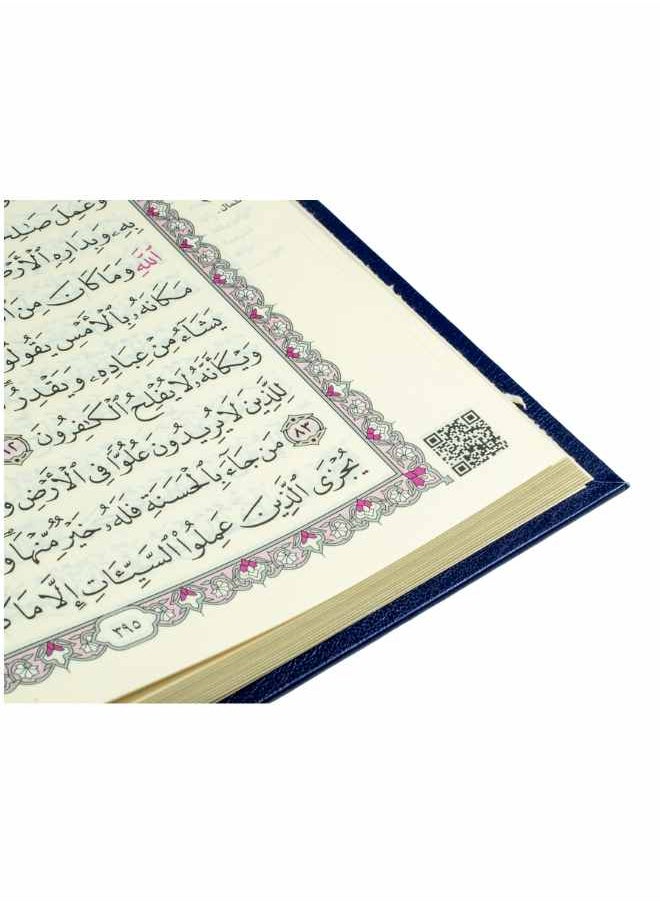 وَعَمِلَ صَٰلِح
بِهِۦ وَبِدَارِهِ ٱلْأَرْضَ
ٱللَّهِ وَمَا كَانَ مِنَ
مَكَانَهُۥ بِٱلْأَمْسِ يَقُولُو
يَشَآءُ مِنْ عِبَادِهِۦ وَيَقْدِرُ
وَيْكَأَنَّهُۥ لَا يُفْلِحُ ٱلْكَٰفِرُونَ ٨٢
لِلَّذِينَ لَا يُرِيدُونَ عُلُوًّا فِي ٱلْأَرْضِ وَ
٨٣ مَن جَآءَ بِٱلْحَسَنَةِ فَلَهُۥ خَيْرٌ مِّنْهَا وَ
يُجْزَى ٱلَّذِينَ عَمِلُوا۟ ٱلسَّيِّـَٔاتِ إِلَّا مَا كَ
٣٩٥